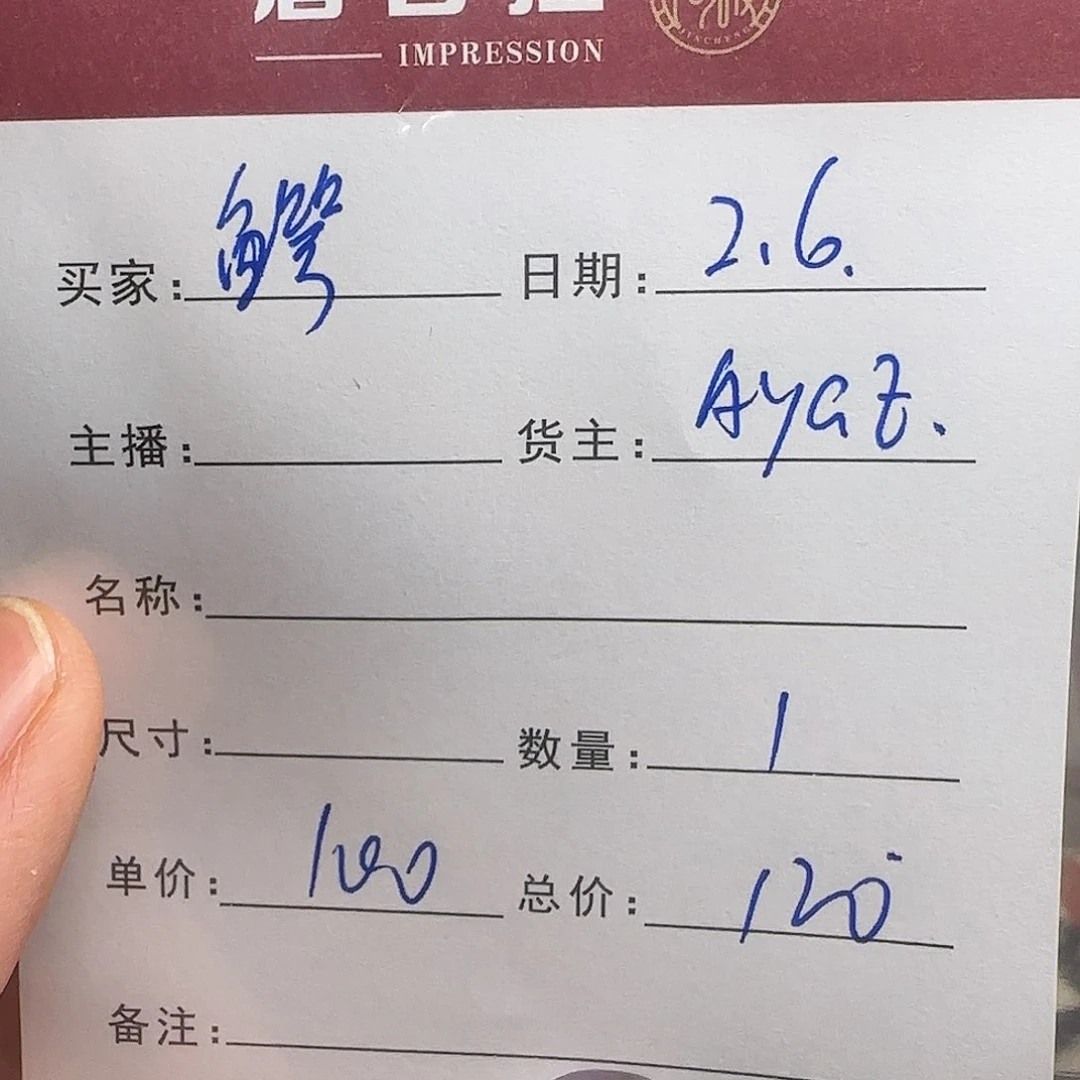 IMPRESSION
JINCHENG
买家：鳄 日期：2.6.
主播： 货主：Ayaz.
名称：
尺寸： 数量：1
单价：100 总价：120
备注：